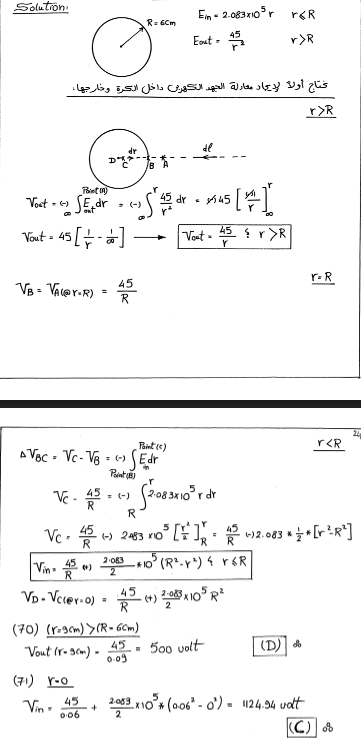 Solution:
R=6cm
E_in = 2.083×10^5 r   r≤R
E_out = 45/r^2   r>R
نحتاج أولاً لإيجاد معادلة الجهد الكهربي داخل الكرة وخارجها.
r>R
D C dr B A dl
V_out = (-) ∫_∞^Point(A) E_out dr = (-) ∫_∞^r 45/r^2 dr = (-) 45 [(-)1/r]_∞^r
V_out = 45 [1/r - 1/∞] → V_out = 45/r ; r>R
r=R
V_B = V_A(@r=R) = 45/R
r<R
ΔV_BC = V_C - V_B = (-) ∫_Point(B)^Point(C) E_in dr
V_C - 45/R = (-) ∫_R^r 2.083×10^5 r dr
V_C = 45/R (-) 2.083 ×10^5 [r^2/2]_R^r = 45/R (-) 2.083 * 1/2 * [r^2-R^2]
V_in = 45/R (+) 2.083/2 *10^5 (R^2-r^2) ; r≤R
V_D = V_C(@r=0) = 45/R (+) 2.083/2 *10^5 R^2
(70) (r=9cm) > (R=6cm)
V_out (r=9cm) = 45/0.09 = 500 volt   (D)
(71) r=0
V_in = 45/0.06 + 2.083/2 ×10^5 * (0.06^2 - 0^2) = 1124.94 volt
(C)